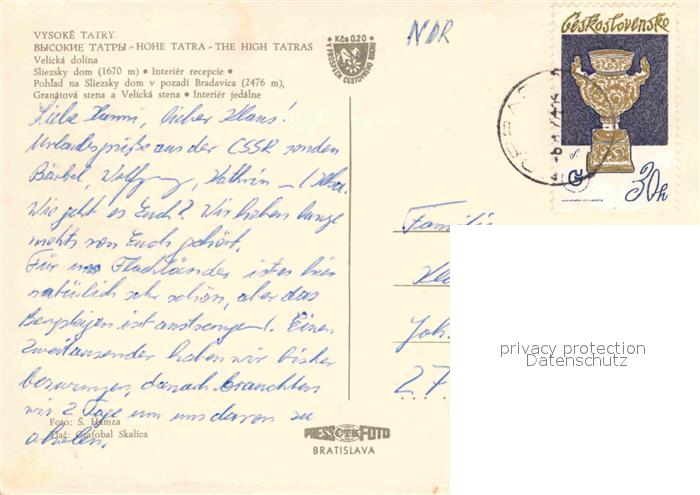 VYSOKÉ TATRY
ВЫСОКИЕ ТАТРЫ - HOHE TATRA - THE HIGH TATRAS
Velická dolina
Sliezsky dom (1670 m) • Interiér recepcie •
Pohľad na Sliezsky dom v pozadí Bradavica (2476 m),
Granátová stena a Velická stena • Interiér jedálne
Kčs 0.20
NDR
Československo
30h
Liebe Hanni, lieber Klaus!
Urlaubsgrüße aus der CSSR senden
Bärbel, Wolfgang, Kathrin
Wie geht es Euch? Wir haben lange
nichts von Euch gehört.
Für uns Flachländer ist es hier
natürlich sehr schön, aber das
Bergsteigen ist anstrengend. Einen
Zweitausender haben wir bisher
bezwungen, danach brauchten
wir 2 Tage um uns davon zu
erholen.
Familie
Joh.
27
privacy protection
Datenschutz
Foto: Š. Hamza
Tlač: Grafobal Skalica
PRESSFOTO
BRATISLAVA